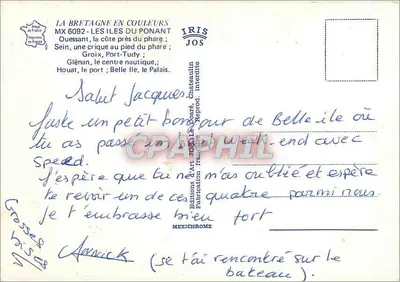 LA BRETAGNE EN COULEURS
MX 6092 - LES ILES DU PONANT
Ouessant, la côte près du phare ;
Sein, une crique au pied du phare ;
Groix, Port-Tudy ;
Glénan, le centre nautique,
Houat, le port ; Belle Ile, le Palais.
IRIS
JOS
Salut Jacques.
Juste un petit bonjour de Belle île où
tu as passé un week-end avec
Speed.
J'espère que tu ne m'as oublié et espère
te revoir un de ces quatre parmi nous
Je t'embrasse bien fort
Annick (se t'ai rencontré sur le
bateau).
Grosses
Editions d'Art JOS Châteaulin
Fabrication française Reprod. interdite
MEXICHROME
CPAPHIL